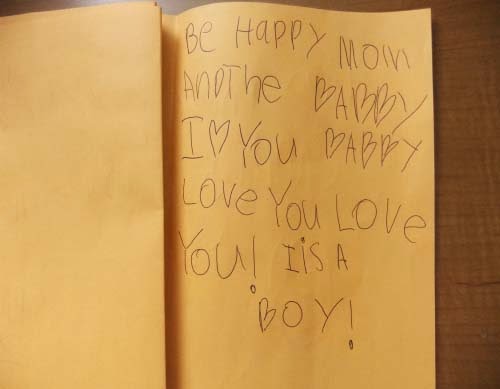 Be HAPPY MOM
ANDThe BABBY
I ♡ YOU BABBY
LOVe YOU LOVe
YOU! IiS A
BOY!